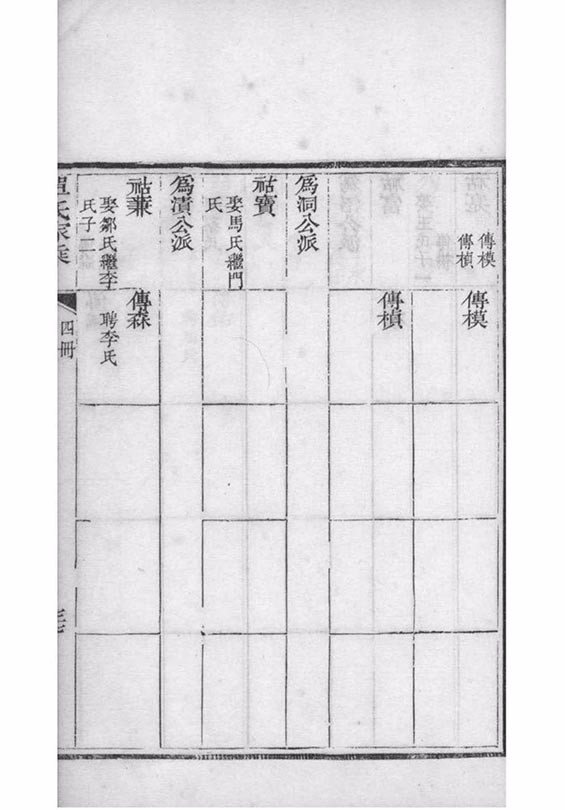 傳模
傳楨
傳模
傳楨
為洞公派
祜寶
娶馬氏繼門
氏
為漬公派
祜蒹
娶鄒氏繼李
氏子二
傳森
聘李氏
氏家乘
四冊